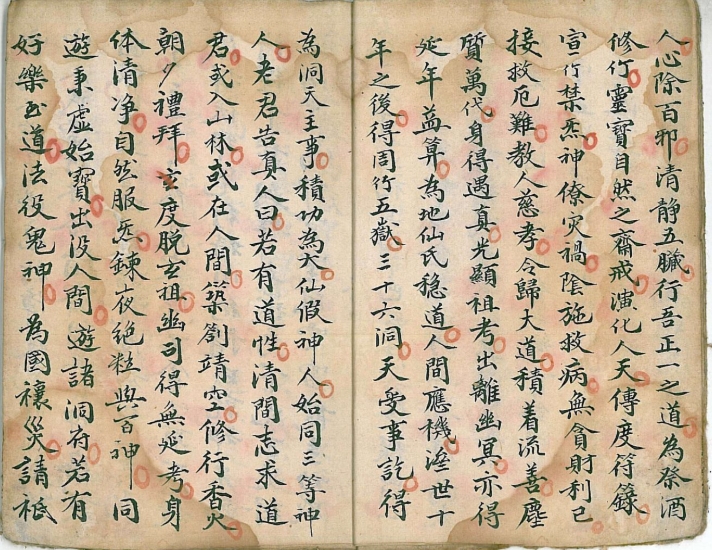 人心除百邪清静五臟行吾正一之道為祭酒
修行靈寳自然之齋戒演化人天傳度符籙
宣行禁炁神僚灾禍陰施救病無貪財利已
接救厄難教人慈孝令歸大道積着流善塵
質萬代身得遇真光顯祖考出離幽冥亦得
延年益算為地仙氏穏道人間應機淦世十
年之後得周行五嶽三十六洞天受事訖得
為洞天主事積功為大仙假神人始同三等神
人老君告真人曰若有道性清閒志求道
君或入山林或在人間築劄靖空修行香火
朝夕禮拜玄度脱玄祖幽司得無延考身
体清净自然服炁錬夜絶粒與百神同
遊秉虚始寳出没人間遊諸洞府若有
好樂玉道法役鬼神為國禳災請祗